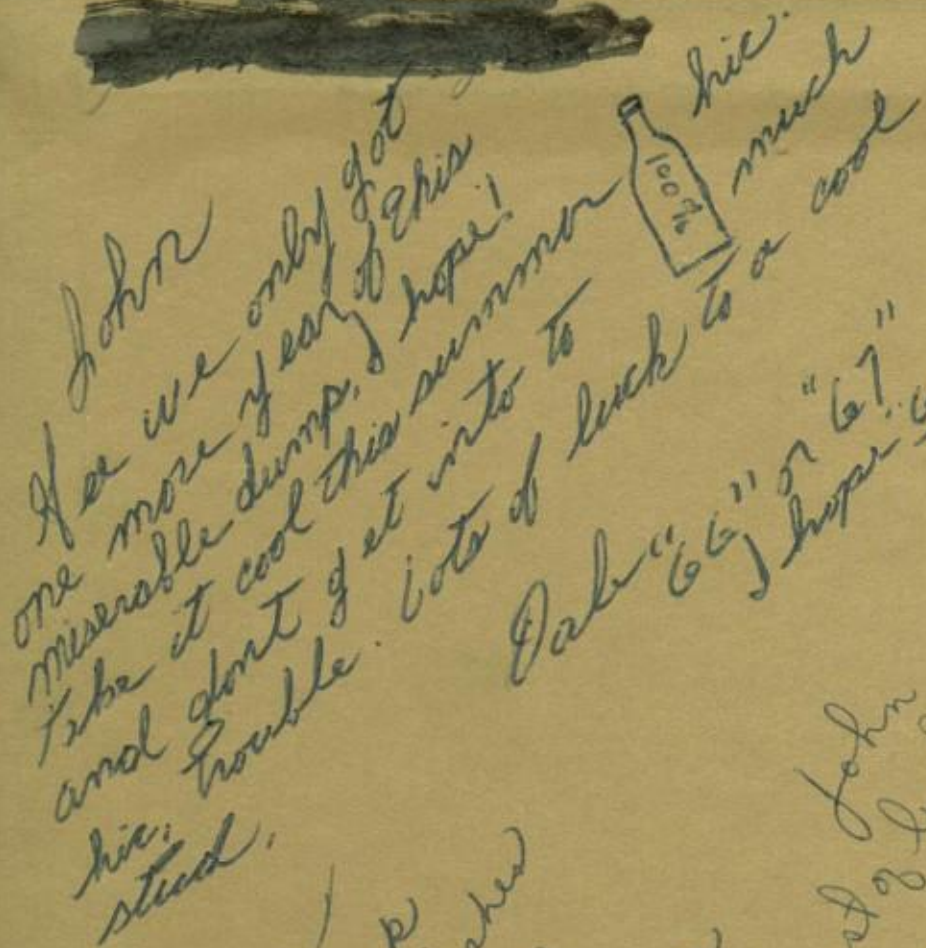 John
Gee we only got
one more year of this
miserable dump, I hope!
Take it cool this summor 100% hic.
and dont get into to much
hic, trouble. Lots of luck to a cool
stud.
Dale "66" or "67"
I hope
John
of